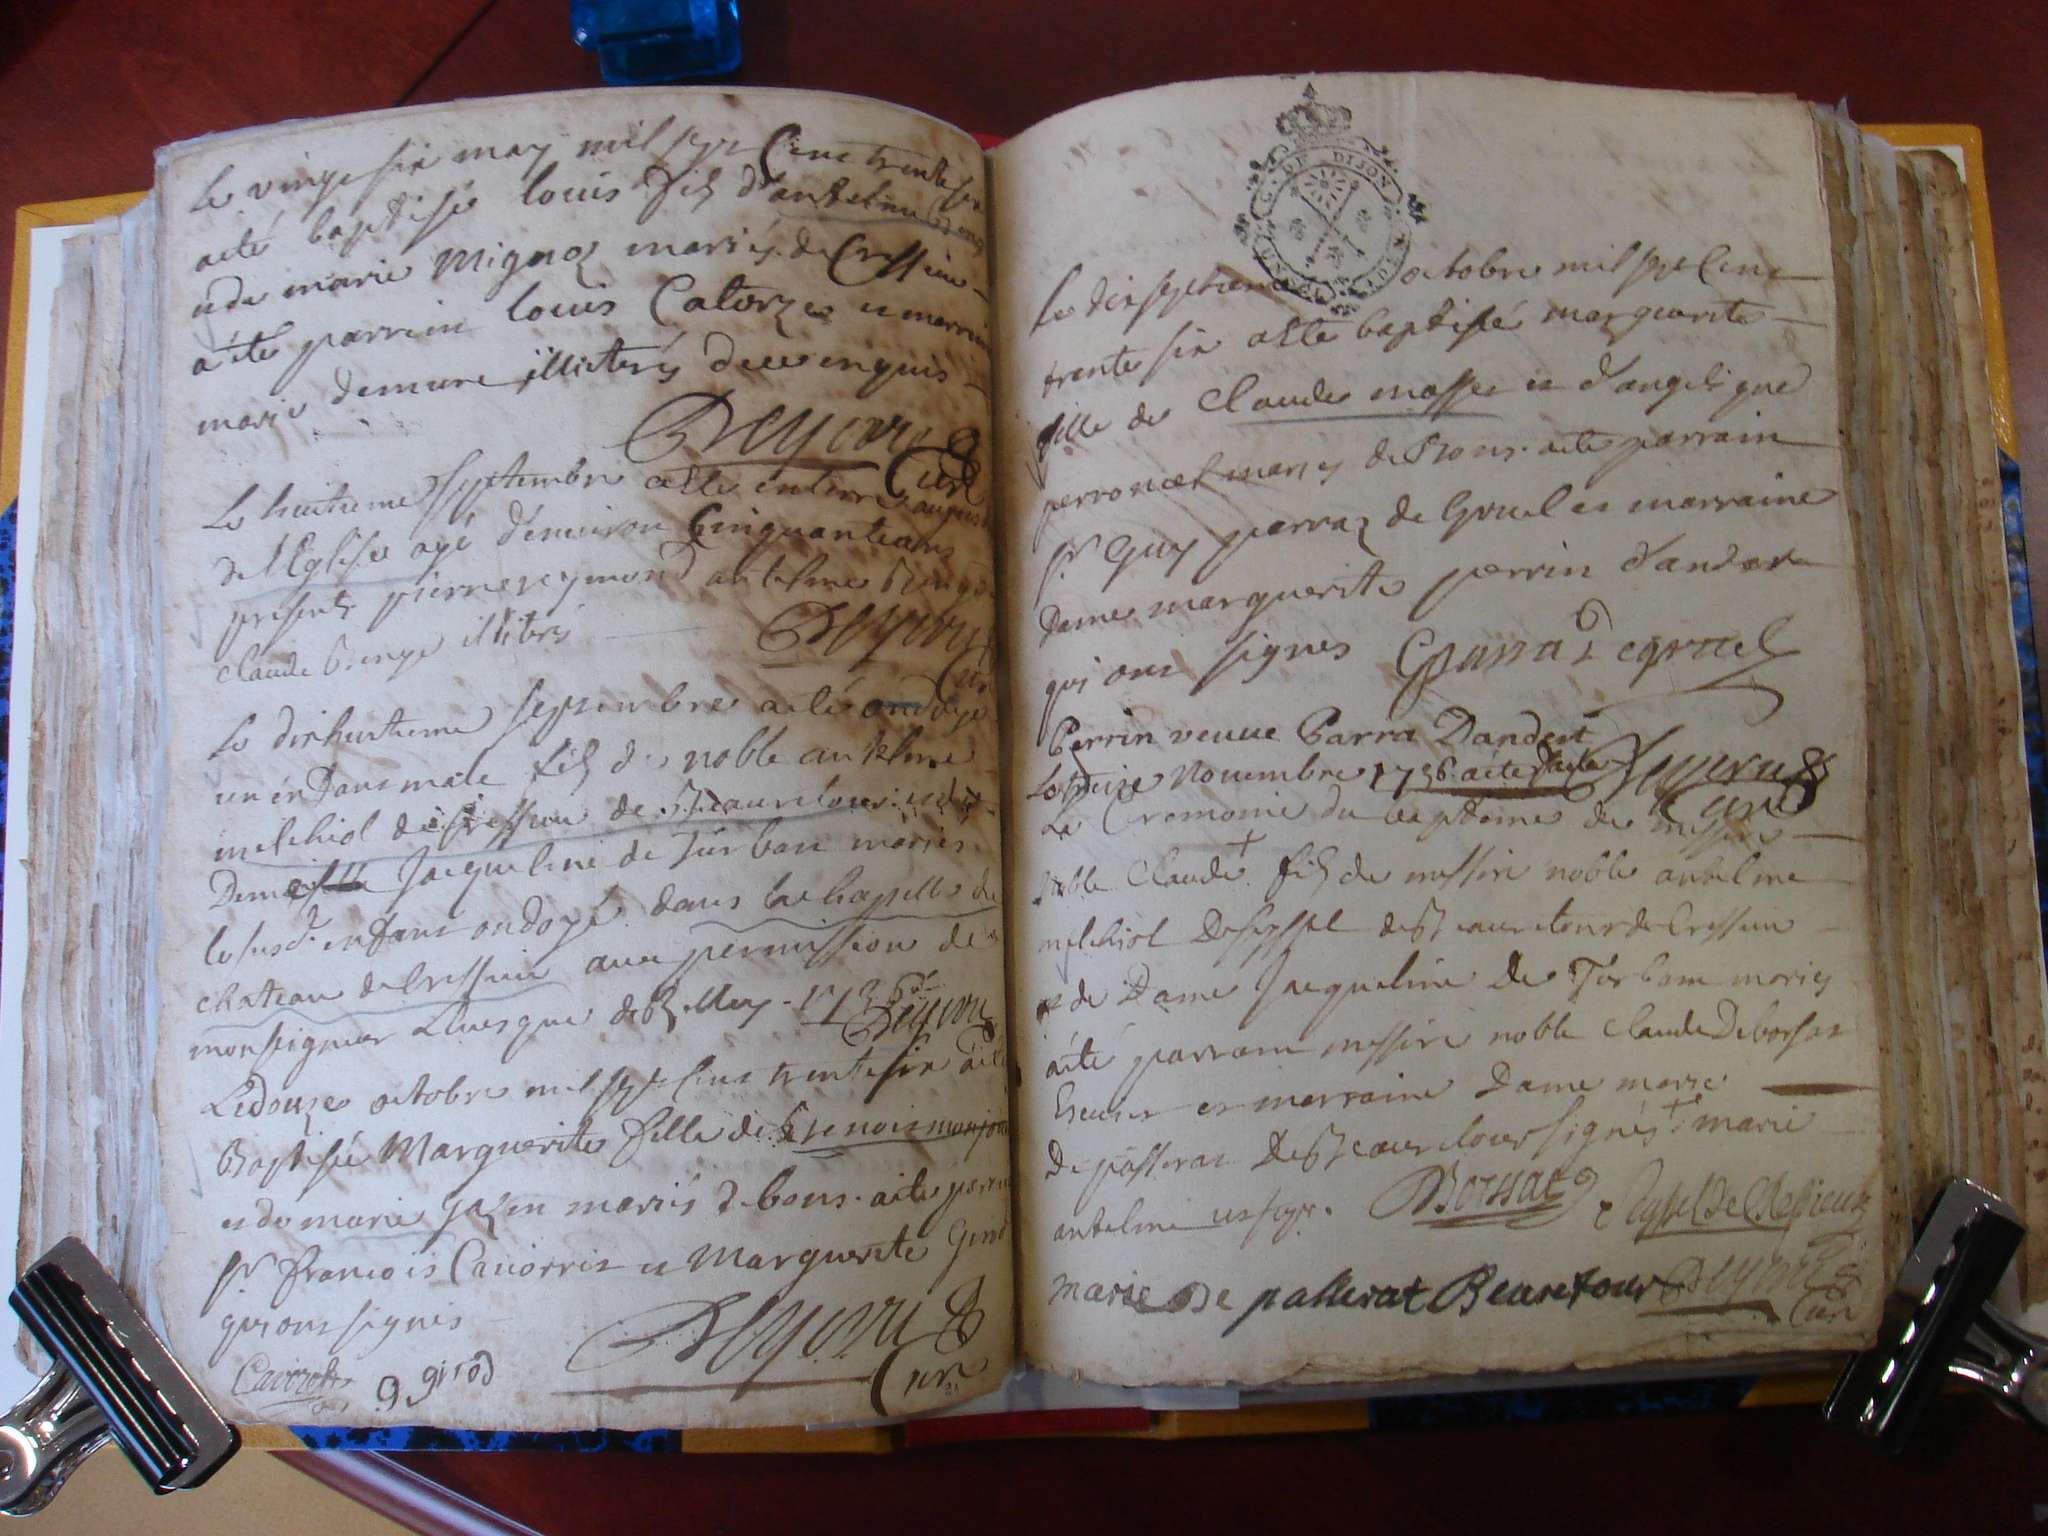 Le vingt six may mil sept cens trente six
a été baptisé louis fils d'antelme
et de marie Mignoz mariés de Cressieu
a été parrein louis Catorze et marreine
marie demeure illiterés deüe enquis
Deyvorie
Curé
Le huitieme septembre a esté enterré
de l'Eglise agé d'environ Cinquante ans
presents pierre reymond antelme Benge
claude Benge illitérés
Deyvorie
Curé
Le dixhuitieme septembre a été ondoyé
un enfans male fils de noble antelme
melchiol de seyssel de Beauretour et de
Demoiselle Jacqueline de Turban mariés
le susd. enfans ondoyé dans la chapelle du
chateau de Cressieu avec permission de
monseigneur L'evesque de Belley 1736
Le douze octobre mil sept cens trente six a été
Baptisée Marguerite fille de Benois
et de marie gazin mariés de bons a été parrein
Sr francois Caviorris et Marguerite Girod
qui ont signés
Caviorris
g girod
Curé
GEN DE DIJON
Le dixseptieme octobre mil sept cens
trente six a esté baptisée marguerite
fille de Claude masse et d'angelique
perroncel mariés de Bons a été parrain
Sr Guy parraz de Gruel et marraine
Dame marguerite perrin d'andert
qui ont signés Gparra Degruel
Perrin veuve Parra Dandert
Le treize Novembre 1736 a été faite
La Ceremonie du bapteme de messire
noble Claude fils de messire noble antelme
melchiol De seyssel de Beauretour de Cressieu
et de Dame Jacqueline De Turbam mariés
a été parrain messire noble Claude De borssat
Ecuier et marraine Dame marie
De passerat De Beauretour signés marie
antelme
DBorssat Seyssel De Cressieu
marie De passerat Beauretour
Curé